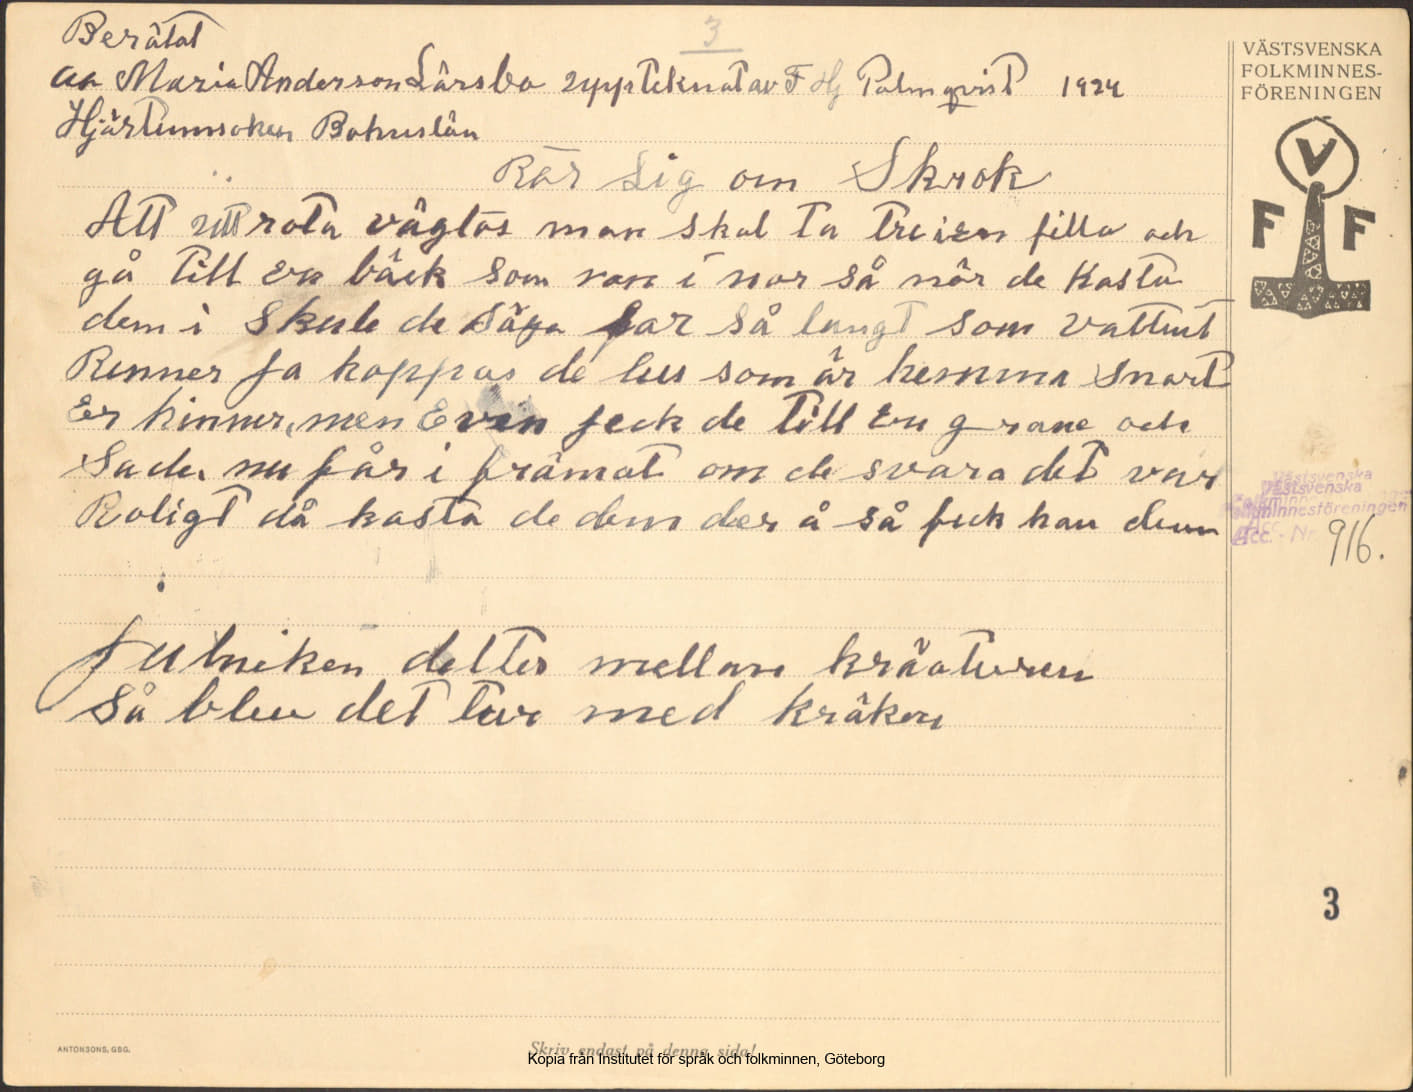 3
Berätat
aa Maria Anderson Lärsbo uppteknat av F Hj Palmqvist 1924
Hjärtumsoken Bohuslän
Rör Sig om Skrok
Att utrota väglös man skal ta tre i en filla och
gå till en bäck som ran i nor så nör de Kasta
dem i Skule de säga far så lungt som vattnet
Renner fa koppas de lus som är hemma Snart
Er hinner, men Even feck de till En grane och
Sade nu får i främat om de svara det var
Roligt då kasta de dem der å så feck han dem
Julneken deltes mellan kräaturen
Så blev det tur med kräken
VÄSTSVENSKA
FOLKMINNES-
FÖRENINGEN
V
F F
Västsvenska
Folkminnesföreningen
Acc. - Nr. 916.
3
ANTONSONS, GBG.
Skriv endast på denna sida!
Kopia från Institutet för språk och folkminnen, Göteborg